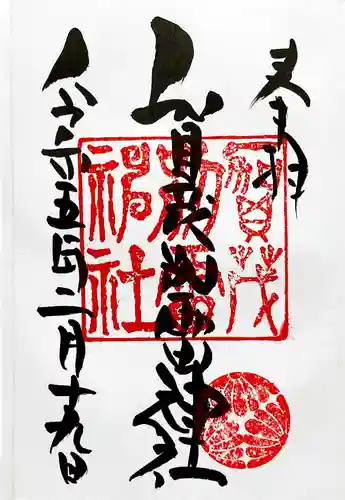 奉拝
賀茂別雷神社
令和五年二月十九日
賀茂
別雷
神社